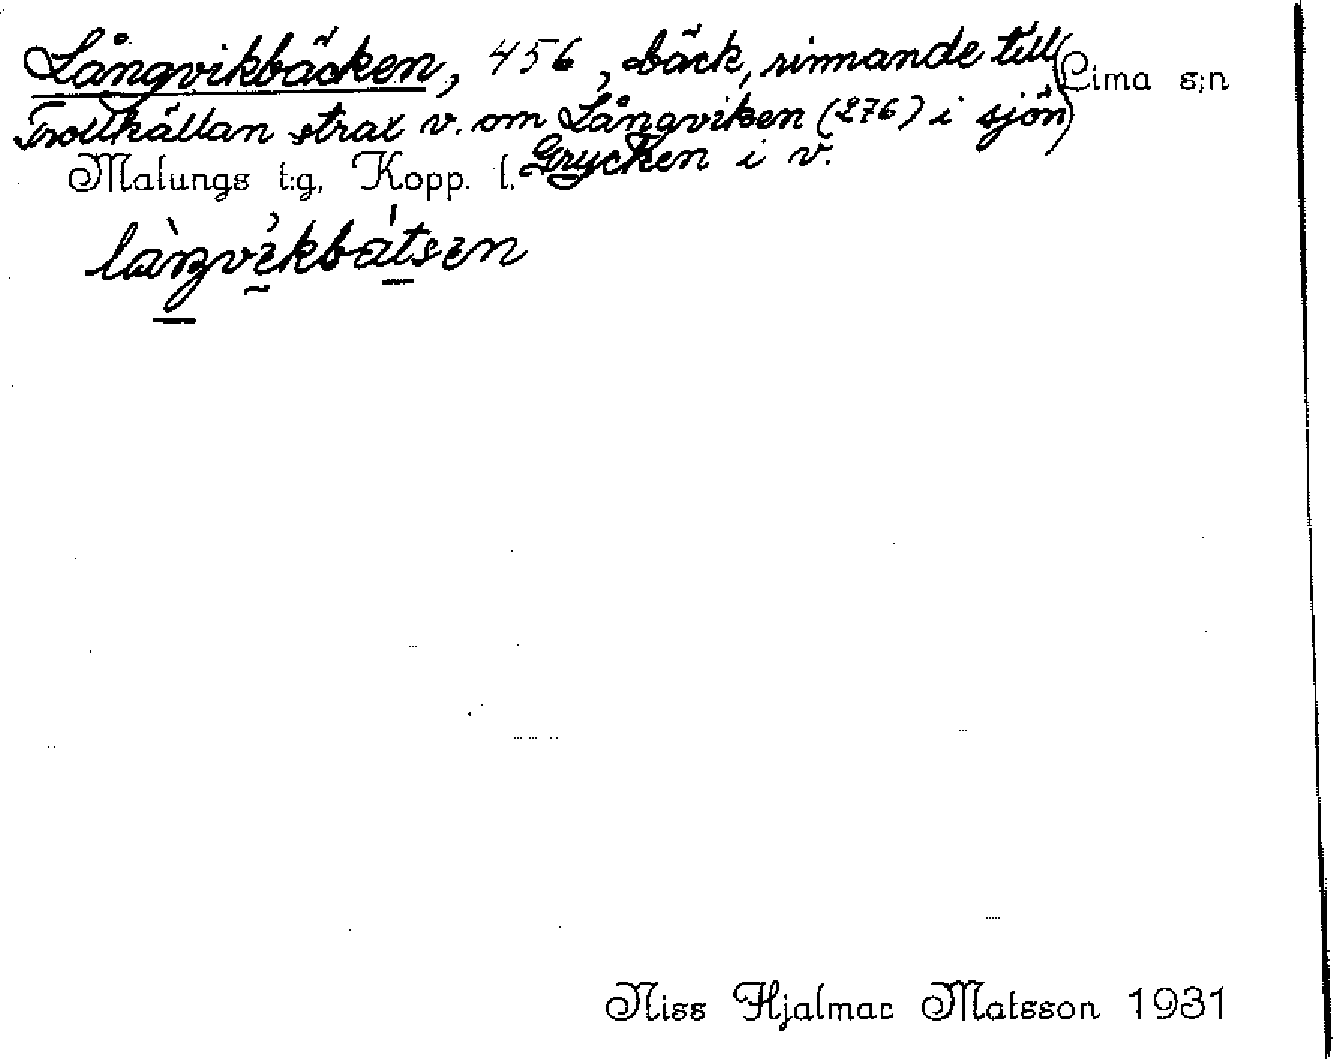 Långvikbäcken, 456, bäck, rinnande till Lima s:n
Trollkällan strax v. om Långviken (276) i sjön
Malungs t:g, Kopp. l. Grycken i v.
Niss Hjalmar Matsson 1931